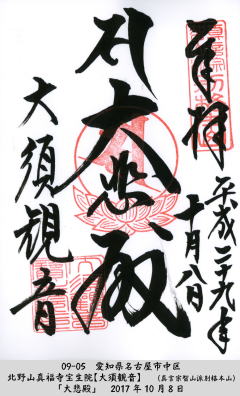 奉拝
平成二十九年
十月八日
大悲殿
大須観音
09-05　愛知県名古屋市中区
北野山真福寺宝生院【大須観音】　（真言宗智山派別格本山）
「大悲殿」　2017年10月8日